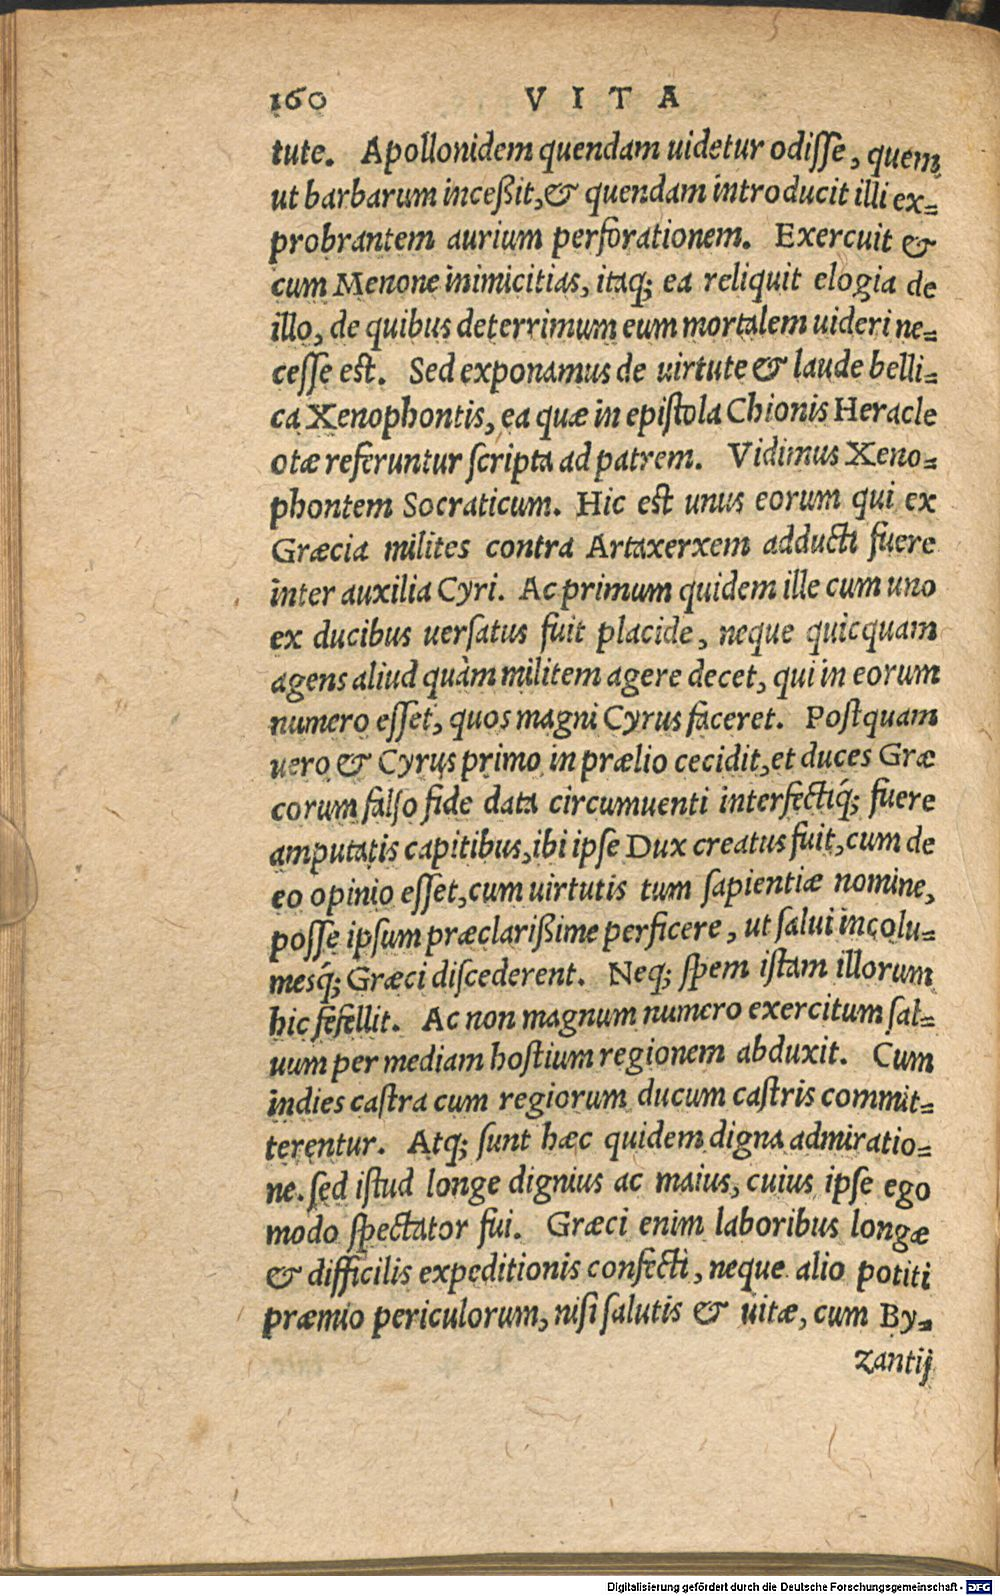 160 VITA
tute. Apollonidem quendam uidetur odiſſe, quem
ut barbarum inceßit, & quendam introducit illi ex-
probrantem aurium perforationem. Exercuit &
cum Menone inimicitias, itaq; ea reliquit elogia de
illo, de quibus deterrimum eum mortalem uideri ne-
ceſſe eſt. Sed exponamus de uirtute & laude belli-
ca Xenophontis, ea quæ in epiſtola Chionis Heracle
otæ referuntur ſcripta ad patrem. Vidimus Xeno-
phontem Socraticum. Hic eſt unus eorum qui ex
Græcia milites contra Artaxerxem adducti fuere
inter auxilia Cyri. Ac primum quidem ille cum uno
ex ducibus uerſatus fuit placide, neque quicquam
agens aliud quàm militem agere decet, qui in eorum
numero eſſet, quos magni Cyrus faceret. Poſtquam
uero & Cyrus primo in prælio cecidit, et duces Græ
corum falſo fide data circumuenti interfectiq́; fuere
amputatis capitibus, ibi ipſe Dux creatus fuit, cum de
eo opinio eſſet, cum uirtutis tum ſapientiæ nomine,
poſſe ipſum præclarißime perficere, ut ſalui incolu-
mesq́; Græci diſcederent. Neq; ſpem iſtam illorum
hic fefellit. Ac non magnum numero exercitum ſal-
uum per mediam hoſtium regionem abduxit. Cum
indies caſtra cum regiorum ducum caſtris commit-
terentur. Atq; ſunt hæc quidem digna admiratio-
ne. ſed iſtud longe dignius ac maius, cuius ipſe ego
modo ſpectator fui. Græci enim laboribus longæ
& difficilis expeditionis confecti, neque alio potiti
præmio periculorum, niſi ſalutis & uitæ, cum By-
zantij
Digitalisierung gefördert durch die Deutsche Forschungsgemeinschaft - DFG